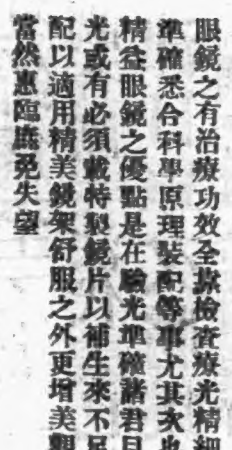 眼鏡之有治療功效全靠檢查療光精細
準確悉合科學原理裝配等事尤其次也
精益眼鏡之優點是在驗光準確諸君目
光或有必須戴特製鏡片以補生來不足
配以適用精美鏡架舒服之外更增美觀
當然惠臨庶免失望